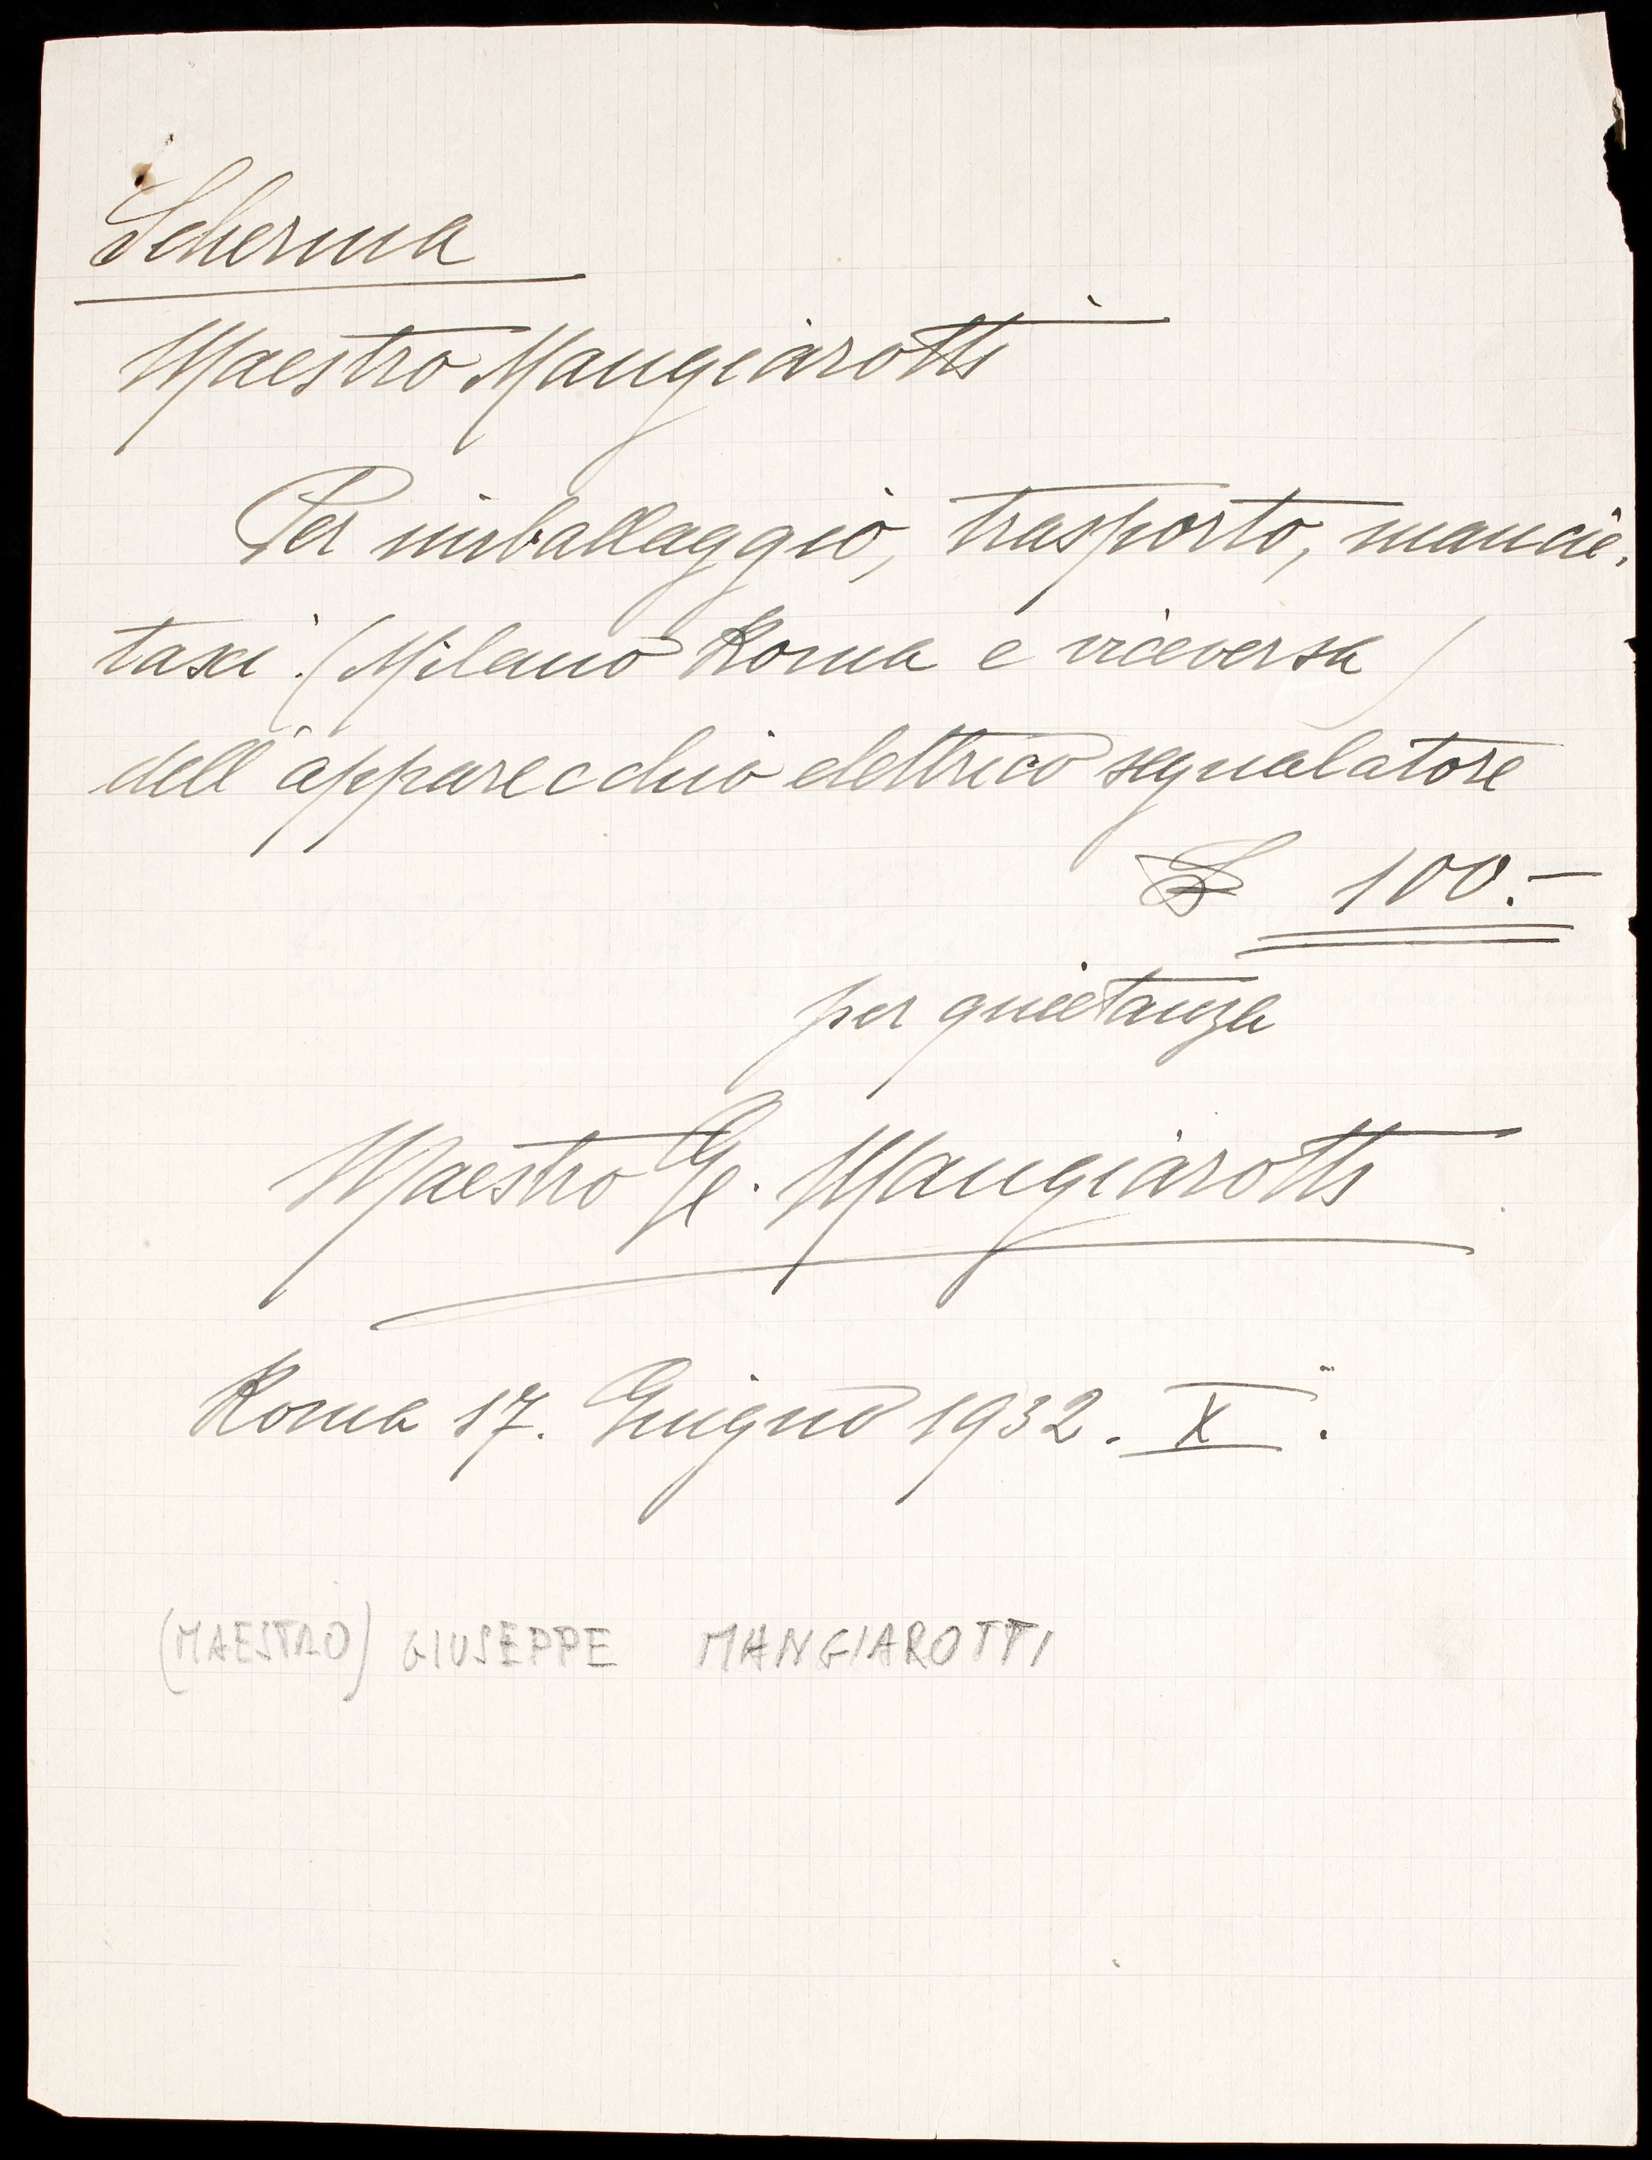 Scherma
Maestro Mangiarotti
Per imballaggio, trasporto, mancie,
taxi. (Milano Roma e viceversa)
dell'apparecchio elettrico segnalatore
£ 100.-
per quietanza
Maestro G. Mangiarotti
Roma 17. Giugno 1932. X.
(MAESTRO) GIUSEPPE MANGIAROTTI